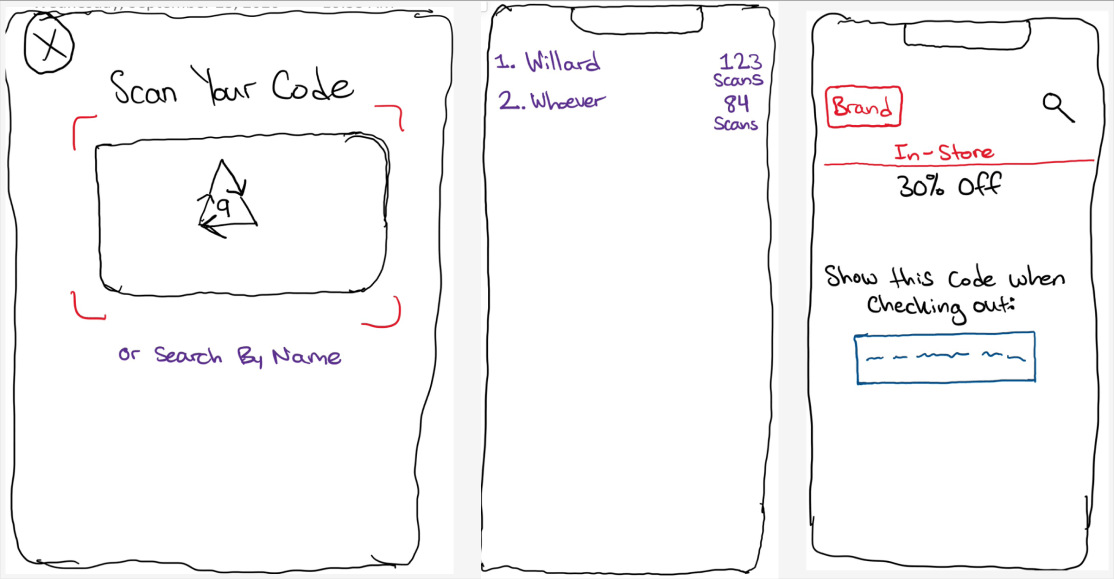 X
Scan Your Code
9
or Search By Name
1. Willard 123
Scans
2. Whoever 84
Scans
Brand
In-Store
30% Off
Show this Code when
Checking out: